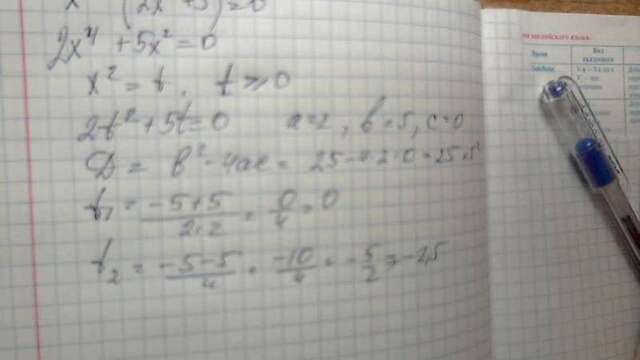 (2x² + 5) = 0
2x⁴ + 5x² = 0
x² = t, t ≥ 0
2t² + 5t = 0 a = 2, b = 5, c = 0
D = b² - 4ac = 25 - 4·2·0 = 25 = 5²
t₁ = (-5+5)/(2·2) = 0/4 = 0
t₂ = (-5-5)/4 = -10/4 = -5/2 = -2,5